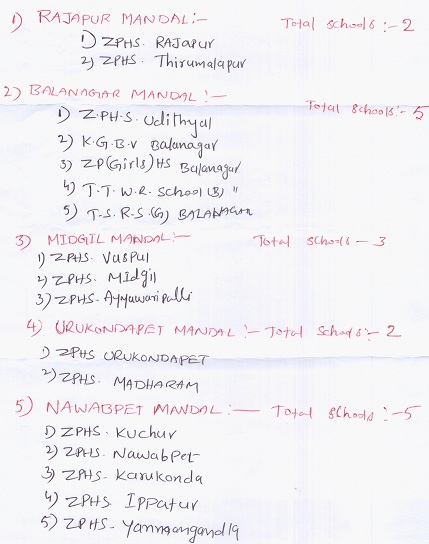 1) RAJAPUR MANDAL:- Total schools :- 2
1) ZPHS. RAJAPUR
2) ZPHS. Thirumalapur
2) BALANAGAR MANDAL :- Total schools:- 5
1) Z.P.H.S. Udithyal
2) K.G.B.V Balanagar
3) ZP(Girls)HS Balanagar
4) T.T.W.R. School (B) "
5) T.S.R.S.(G) BALANAGAR
3) MIDGIL MANDAL:- Total schools - 3
1) ZPHS. Vaspul
2) ZPHS. MIdgil
3) ZPHS. Ayyawaripalli
4) URUKONDAPET MANDAL :- Total Schools :- 2
1) ZPHS URUKONDAPET
2) ZPHS. MADHARAM
5) NAWABPET MANDAL :- Total Schools :- 5
1) ZPHS. Kuchur
2) ZPHS. Nawabpet
3) ZPHS. Karukonda
4) ZPHS. Ippatur
5) ZPHS.